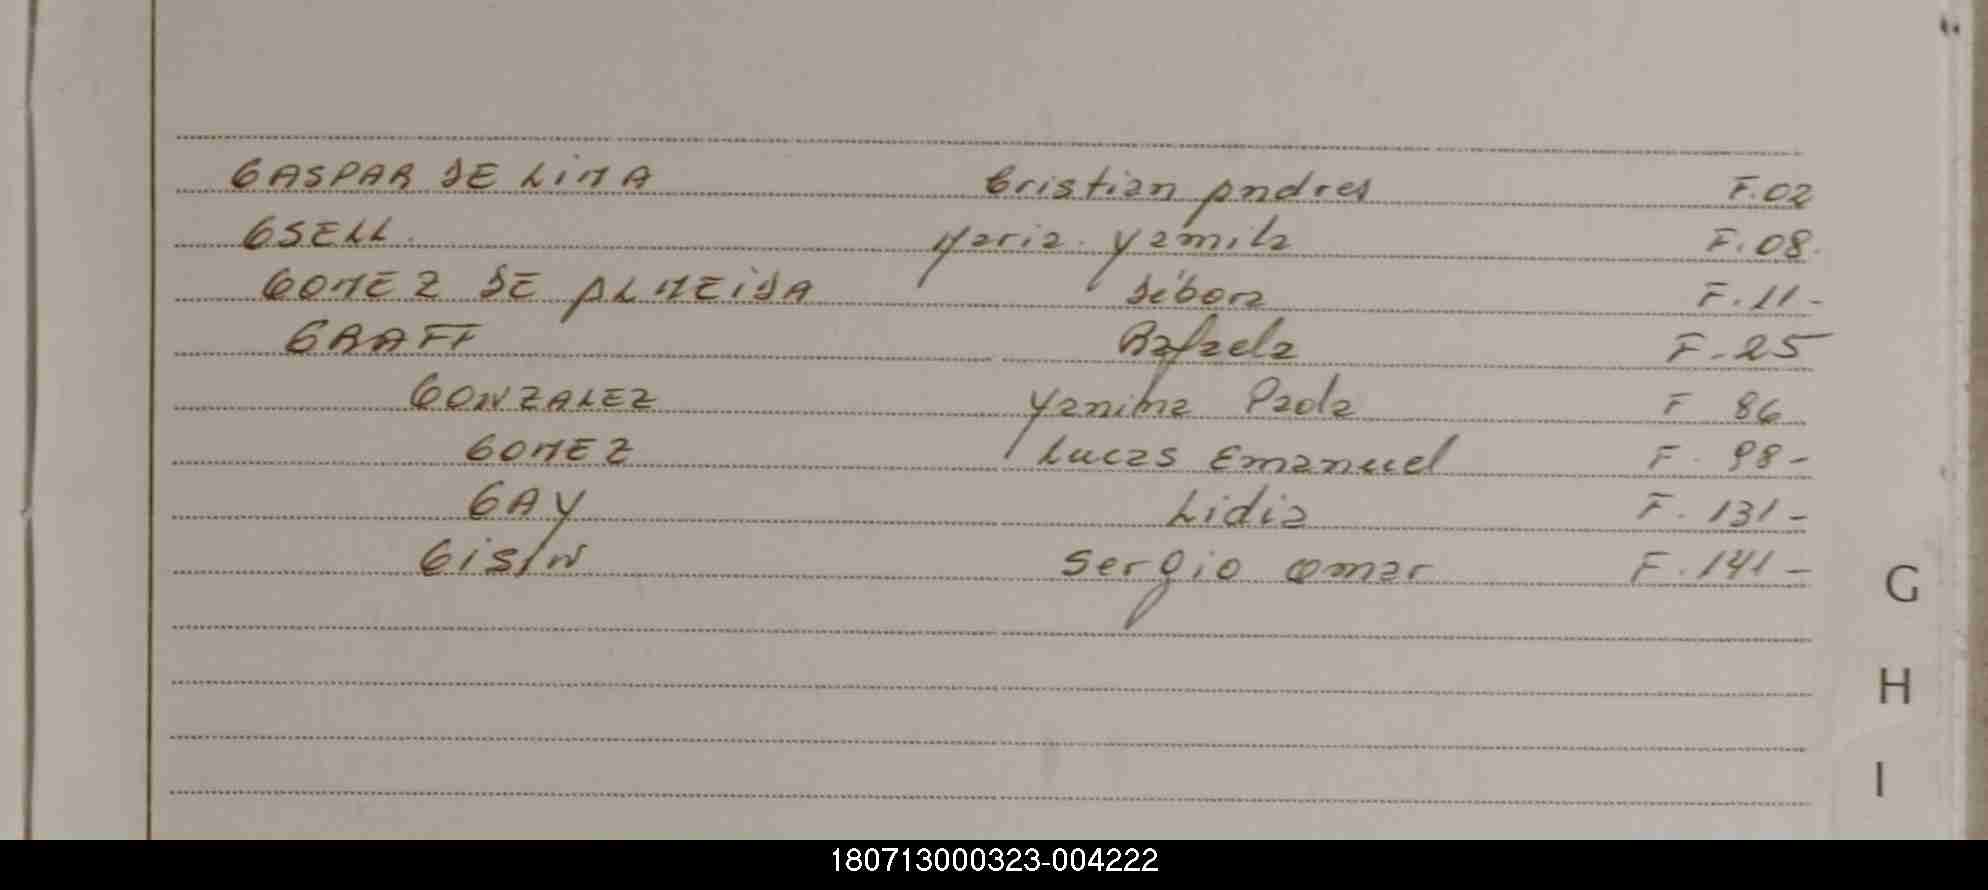 GASPAR DE LIMA Cristian Andres F.02
GSELL. Maria. Yamila F.08.
GOMEZ DE ALMEIDA Débora F.11-
GRAFF Rafaela F-25
GONZALEZ Yanina Paola F 86
GOMEZ Lucas Emanuel F. 98-
GAY Lidia F. 131-
Sergio Omar F.141-
G
H
I
180713000323-004222